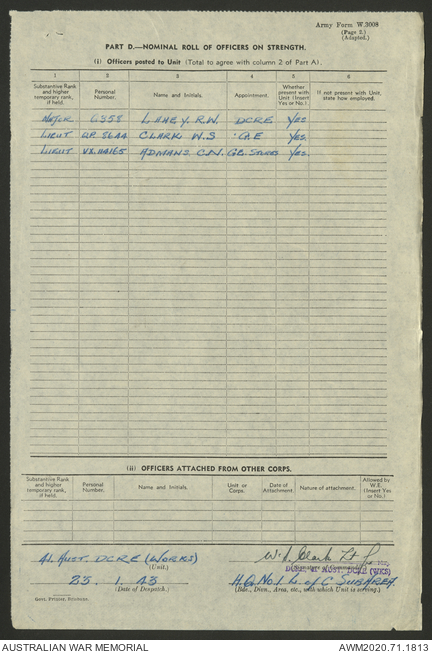 Army Form W.3008
(Page 2.)
(Adapted.)
PART D.—NOMINAL ROLL OF OFFICERS ON STRENGTH.
(i) Officers posted to Unit (Total to agree with column 2 of Part A).
1 2 3 4 5 6
Substantive Rank and higher temporary rank, if held. Personal Number. Name and Initials. Appointment. Whether present with Unit (Insert Yes or No.). If not present with Unit, state how employed.
R.W. DCRE Yes
LIEUT CLARK W.S Yes
LIEUT C.N. Yes.
(ii) OFFICERS ATTACHED FROM OTHER CORPS.
Substantive Rank and higher temporary rank, if held. Personal Number. Name and Initials. Unit or Corps. Date of Attachment. Nature of attachment. Allowed by W.E. (Insert Yes or No.)
41 AUST. DCRE (WORKS)
(Unit.)
W.S. Clark Lt
DCRE, 41 AUST. DCRE (WKS)
23 . 1 . 43
(Date of Despatch.)
H.Q. No.1 L. of C SUB AREA.
(Bde., Divn., Area, etc., with which Unit is serving.)
Govt. Printer, Brisbane.
AUSTRALIAN WAR MEMORIAL AWM2020.71.1813